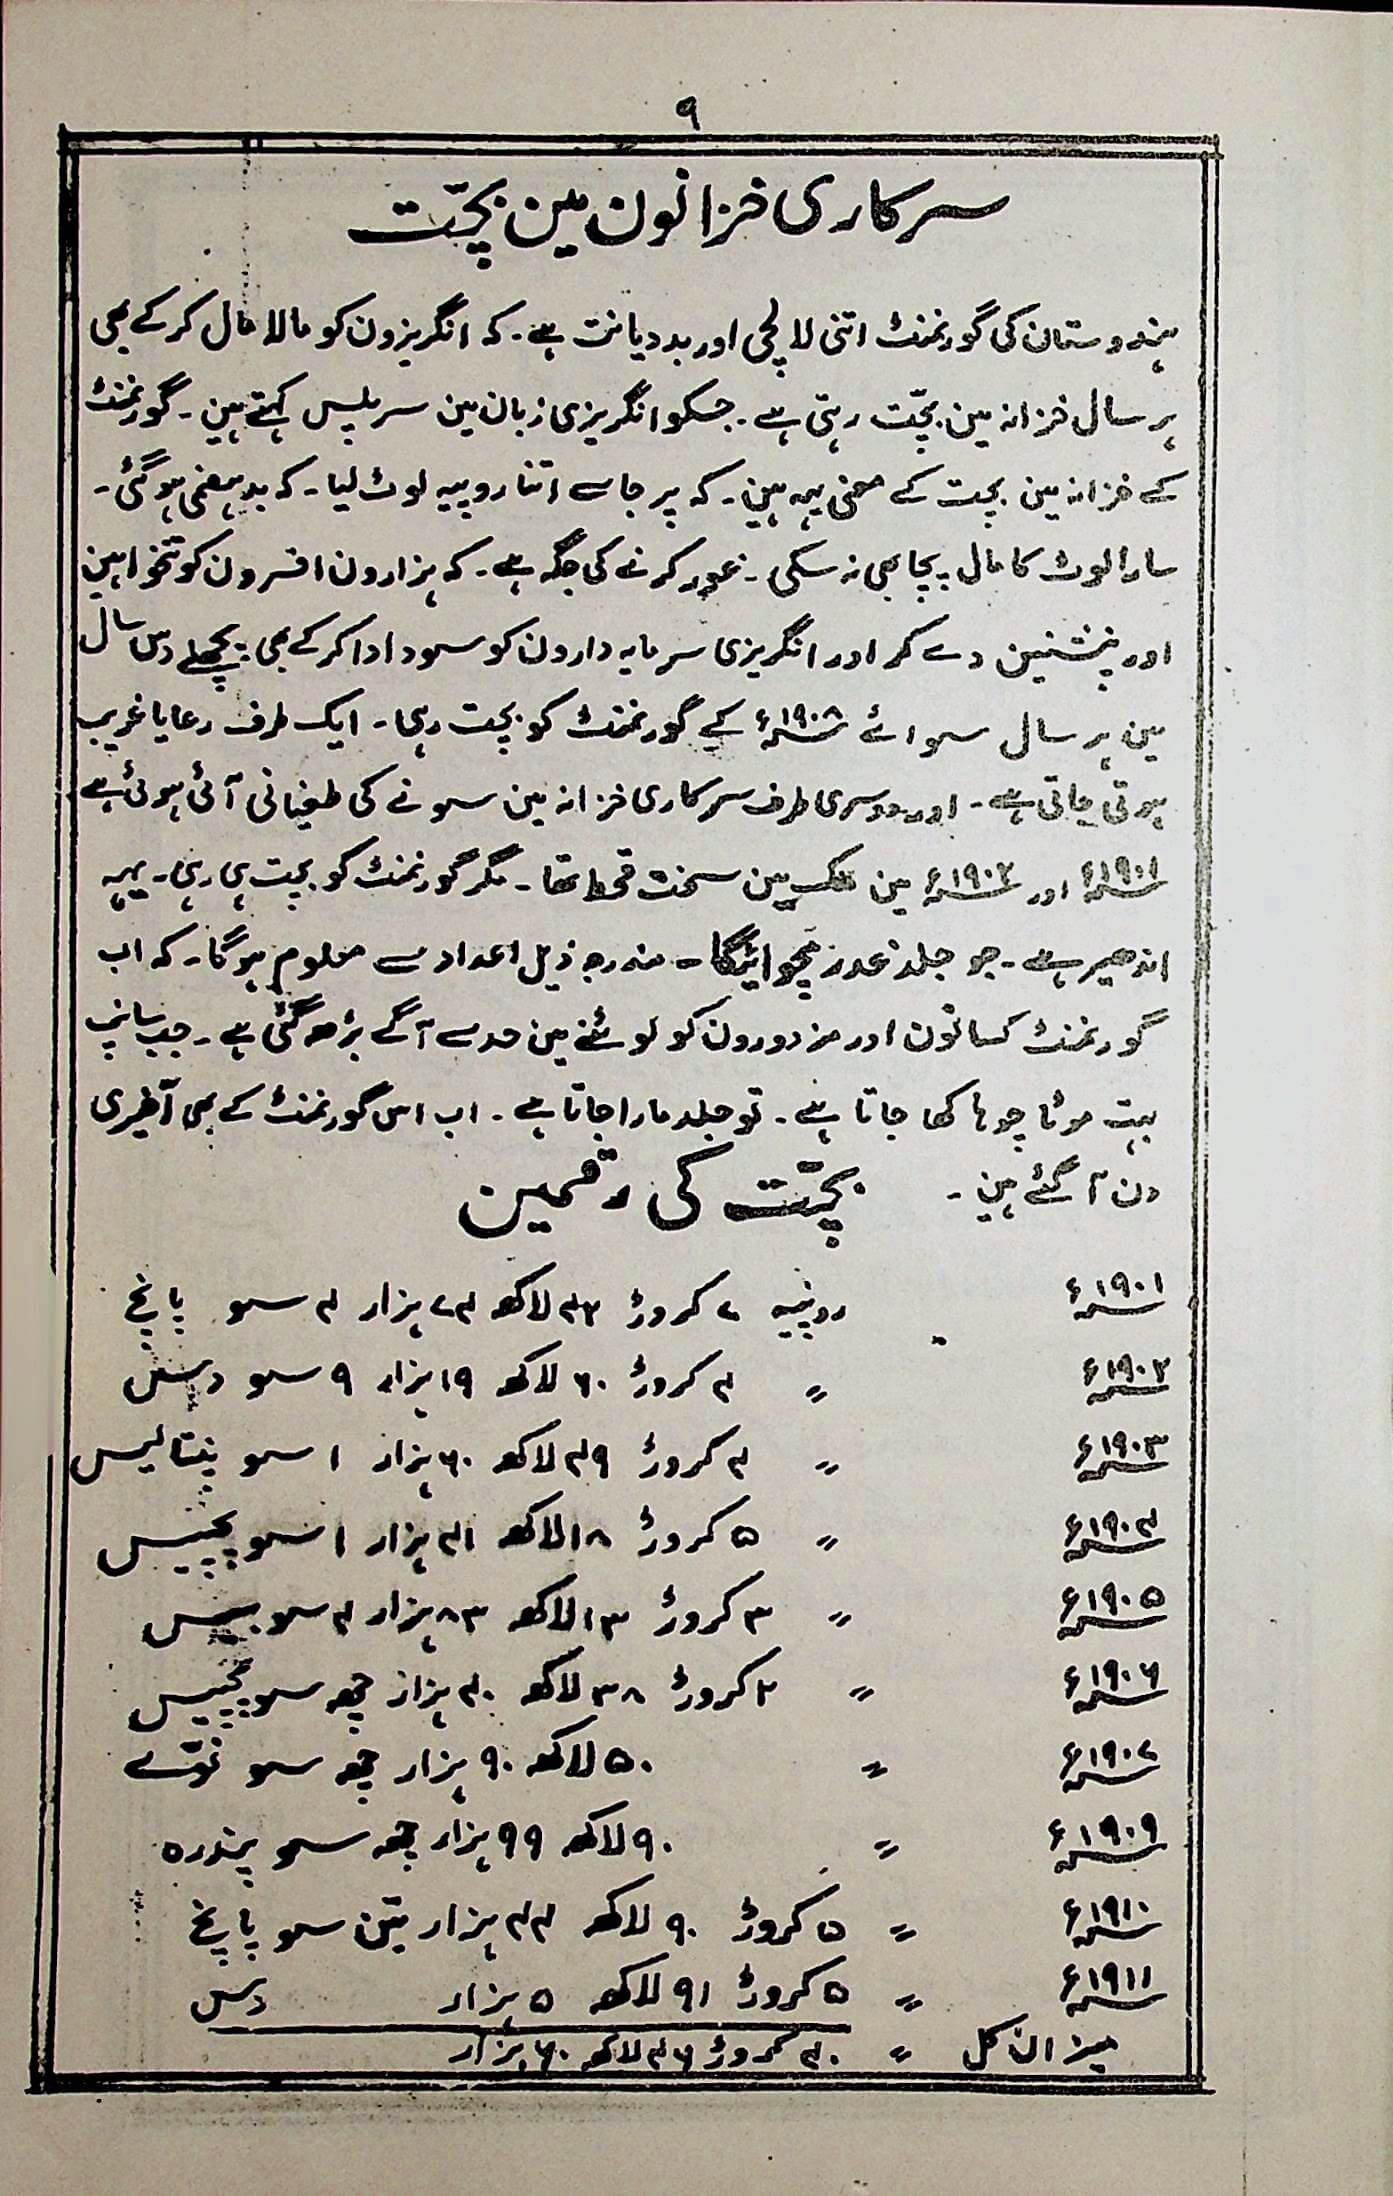 ۹
سرکاری خزانون مین بچّت
ہندوستان کی گورنمنٹ اتنی لالچی اور بددیانت ہے۔ کہ انگریزون کو مالا مال کرکے بھی
ہر سال خزانہ مین بچّت رہتی ہے۔ جسکو انگریزی زبان مین سرپلس کہتے ہین۔ گورنمنٹ
کے خزانہ مین بچت کے معنی یہہ ہین۔ کہ پرجا سے اتنا روپیہ لوٹ لیا۔ کہ بدہضمی ہوگئی۔
سارا لوٹ کا مال پچا بھی نہ سکی۔ غور کرنے کی جگہ ہے۔ کہ ہزارون افسرون کو تنخواہین
اور پنشنین دے کر اور انگریزی سرمایہ دارون کو سود ادا کرکے بھی پچھلے دس سال
مین ہر سال سوائے ۱۹۰۸ء کے گورنمنٹ کو بچت رہی۔ ایک طرف رعایا غریب
ہوتی جاتی ہے۔ اور دوسری طرف سرکاری خزانہ مین سونے کی طغیانی آئی ہوئی ہے
۱۹۰۱ء اور ۱۹۰۲ء مین ملک مین سخت قحط تھا۔ مگر گورنمنٹ کو بچت ہی رہی۔ یہہ
اندھیر ہے۔ جو جلد غدر مچوائیگا۔ مندرجہ ذیل اعداد سے معلوم ہوگا۔ کہ اب
گورنمنٹ کسانون اور مزدورون کو لوٹنے مین حد سے آگے بڑھ گئی ہے۔ جب سانپ
بہت موٹا چوہا کھا جاتا ہے۔ تو جلد مارا جاتا ہے۔ اب اس گورنمنٹ کے بھی آخیری
دن آگئے ہین۔
بچّت کی رقمین
۱۹۰۱ء روپیہ ۷ کروڑ ۴۲ لاکھ ۷۴ ہزار ۴ سو پانچ
۱۹۰۲ء " ۴ کروڑ ۶۰ لاکھ ۱۹ ہزار ۹ سو دس
۱۹۰۳ء " ۴ کروڑ ۴۹ لاکھ ۶۰ ہزار ۱ سو پنتالیس
۱۹۰۴ء " ۵ کروڑ ۱۸ لاکھ ۴۱ ہزار ۱ سو پچیس
۱۹۰۵ء " ۳ کروڑ ۱۳ لاکھ ۸۳ ہزار ۴ سو بیس
۱۹۰۶ء " ۲ کروڑ ۳۸ لاکھ ۴۰ ہزار چھ سو پچیس
۱۹۰۷ء " ۵۰ لاکھ ۹۰ ہزار چھ سو نوّے
۱۹۰۹ء " ۹۰ لاکھ ۹۹ ہزار چھ سو پندرہ
۱۹۱۰ء " ۵ کروڑ ۹۰ لاکھ ۴۴ ہزار تین سو پانچ
۱۹۱۱ء " ۵ کروڑ ۹۱ لاکھ ۵ ہزار دس
میزان کل " ۴۰ کروڑ ۴۶ لاکھ ۶۰ ہزار